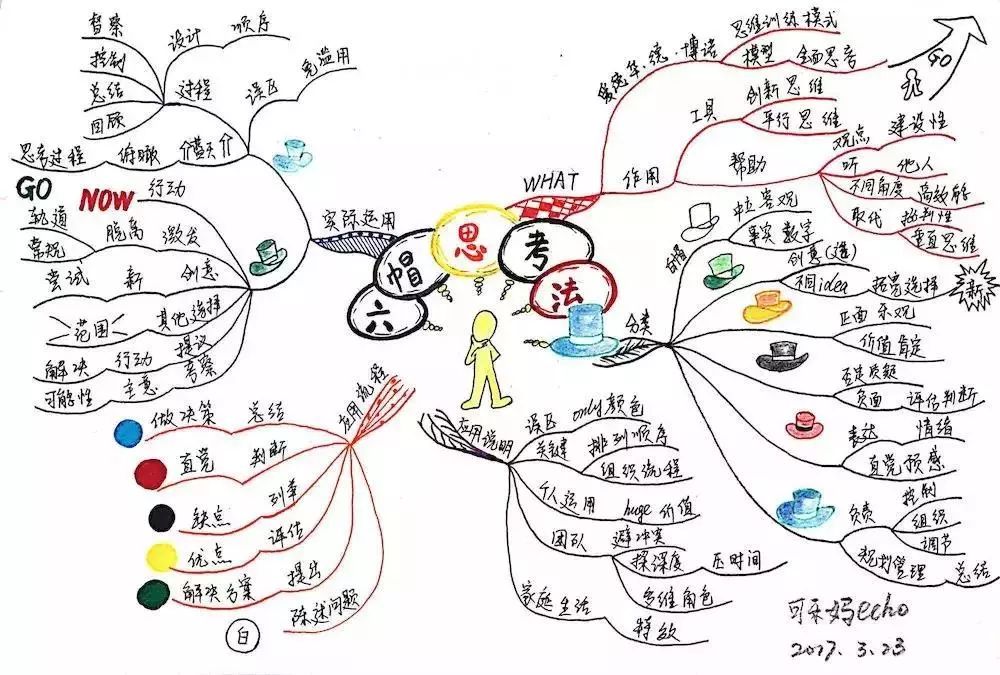 六帽思考法
WHAT
爱德华·德·博诺
思维训练模式
模型 全面思考
作用
工具
创新思维
平行思维
帮助
观点 建设性
听 他人
不同角度 高效能
取代 批判性
垂直思维
GO
分类
白帽
中立客观
事实 数字
创意
不同idea 拓宽选择
新
正面 乐观
价值肯定
否定质疑
负面 评估判断
表达 情绪
直觉预感
负责
控制
组织
调节
规划管理 总结
应用说明
误区 only颜色
关键
排列顺序
组织流程
个人运用 huge 价值
团队
避冲突
探深度 压时间
多维角色
家庭生活 特效
应用流程
陈述问题
白
提出 解决方案
评估 优点
列举 缺点
判断 直觉
总结 做决策
实际运用
过程
设计 顺序
督察
控制
总结
回顾
误区 免滥用
俯瞰 思考过程
行动
GO
NOW
激发 脱离
轨道
常规
创意 新 尝试
其他选择
范围
提议 行动 解决
考察 主意 可能性
可乐妈echo
2017.3.23